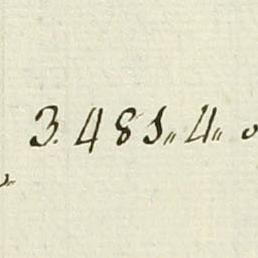 3. 481„ 4„ 0